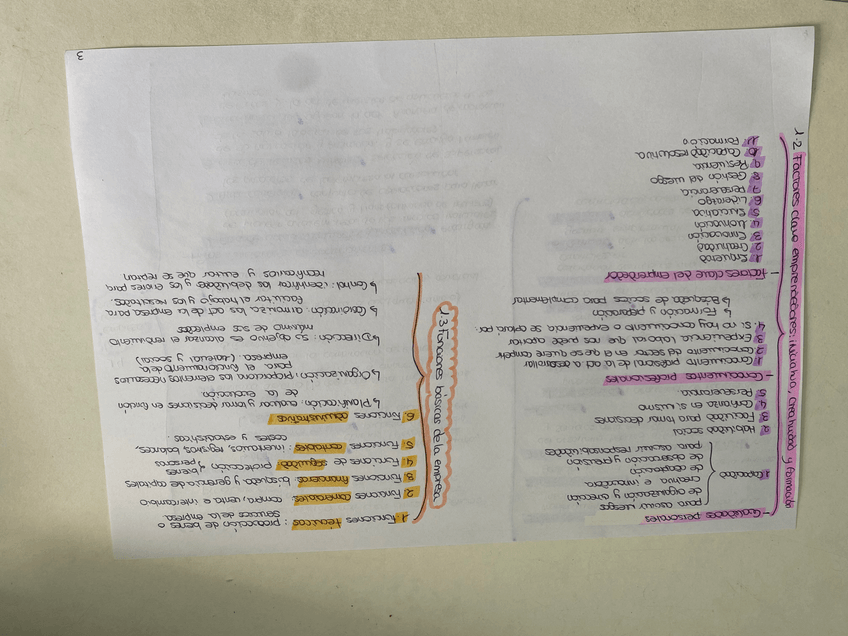 1.2 Factores clave emprendedores: iniciativa, creatividad y formación
- Cualidades personales
1. Capacidad
para asumir riesgos
de organización y dirección
creativa e innovadora
de cooperación
de observación y previsión
para asumir responsabilidades
2. Habilidad social
3. Facilidad para tomar decisiones
4. Confianza en sí mismo
5. Perseverancia
- Conocimientos profesionales
1. Conocimiento profesional de la act. a desarrollar
2. Conocimiento del sector en el que se quiere competir
3. Experiencia laboral que nos puede aportar
4. Si no hay conocimiento o experiencia se optará por:
↳ Formación y preparación
↳ Búsqueda de socios para complementar
- Factores clave del emprendedor
1.
2. Creatividad
3. Innovación
4. Motivación
5. Iniciativa
6. Liderazgo
7. Perseverancia
8. Gestión del riesgo
9. Resiliencia
10. Capacidad resolutiva
11. Formación
1.3 Funciones básicas de la empresa
1. Funciones técnicas: producción de bienes o
servicios de la empresa
2. Funciones comerciales: compra, venta e intercambio
3. Funciones financieras: búsqueda y gerencia de capitales
4. Funciones de seguridad: protección bienes
y personas
5. Funciones contables: inventarios, registros, balances,
costes y estadísticas.
6. Funciones administrativas
↳ Planificación: evaluar y tomar decisiones en función
de la evaluación
↳ Organización: proporciona los elementos necesarios
para el funcionamiento de la
empresa (Material y Social)
↳ Dirección: su objetivo es alcanzar el rendimiento
máximo de sus empleados
↳ Coordinación: armonizar las act. de la empresa para
facilitar el trabajo y los resultados.
↳ Control: identificar las debilidades y los errores para
rectificarlos y evitar que se repitan
3